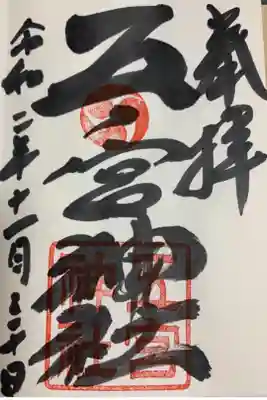 奉拝
五宮神社
令和二年十一月三十日